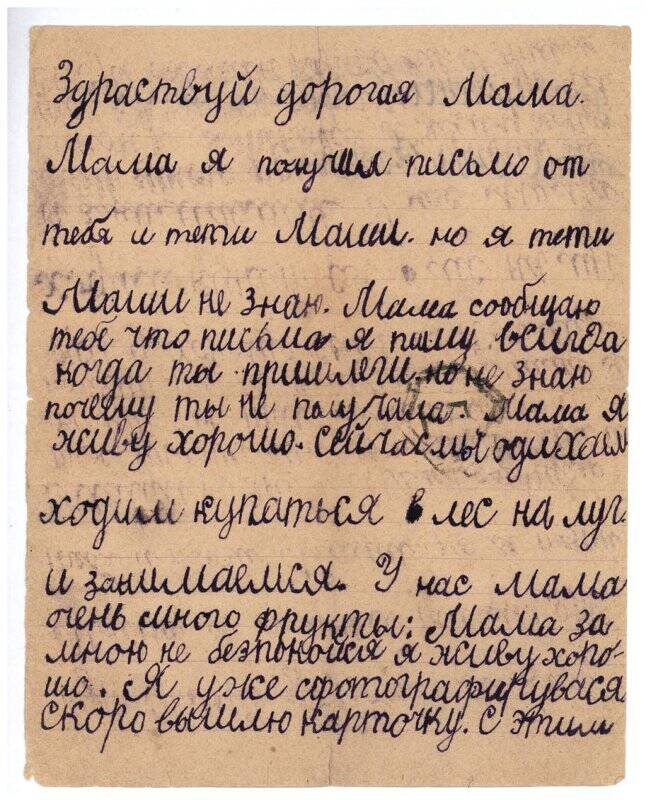 Здраствуй дорогая Мама.
Мама я получил письмо от
тебя и тети Маши. но я тети
Маши не знаю. Мама сообщаю
тебе что письма я пишу всигда
когда ты пришлеш. но не знаю
почему ты не получала. Мама я
живу хорошо. Сейчас мы одихаем
ходим купаться в лес на луг.
и занимаемся. У нас мама
очень много фрукты: Мама за
мною не безпокойся я живу хоро-
шо. Я уже сфотографирувася.
скоро вышлю карточку. С этим